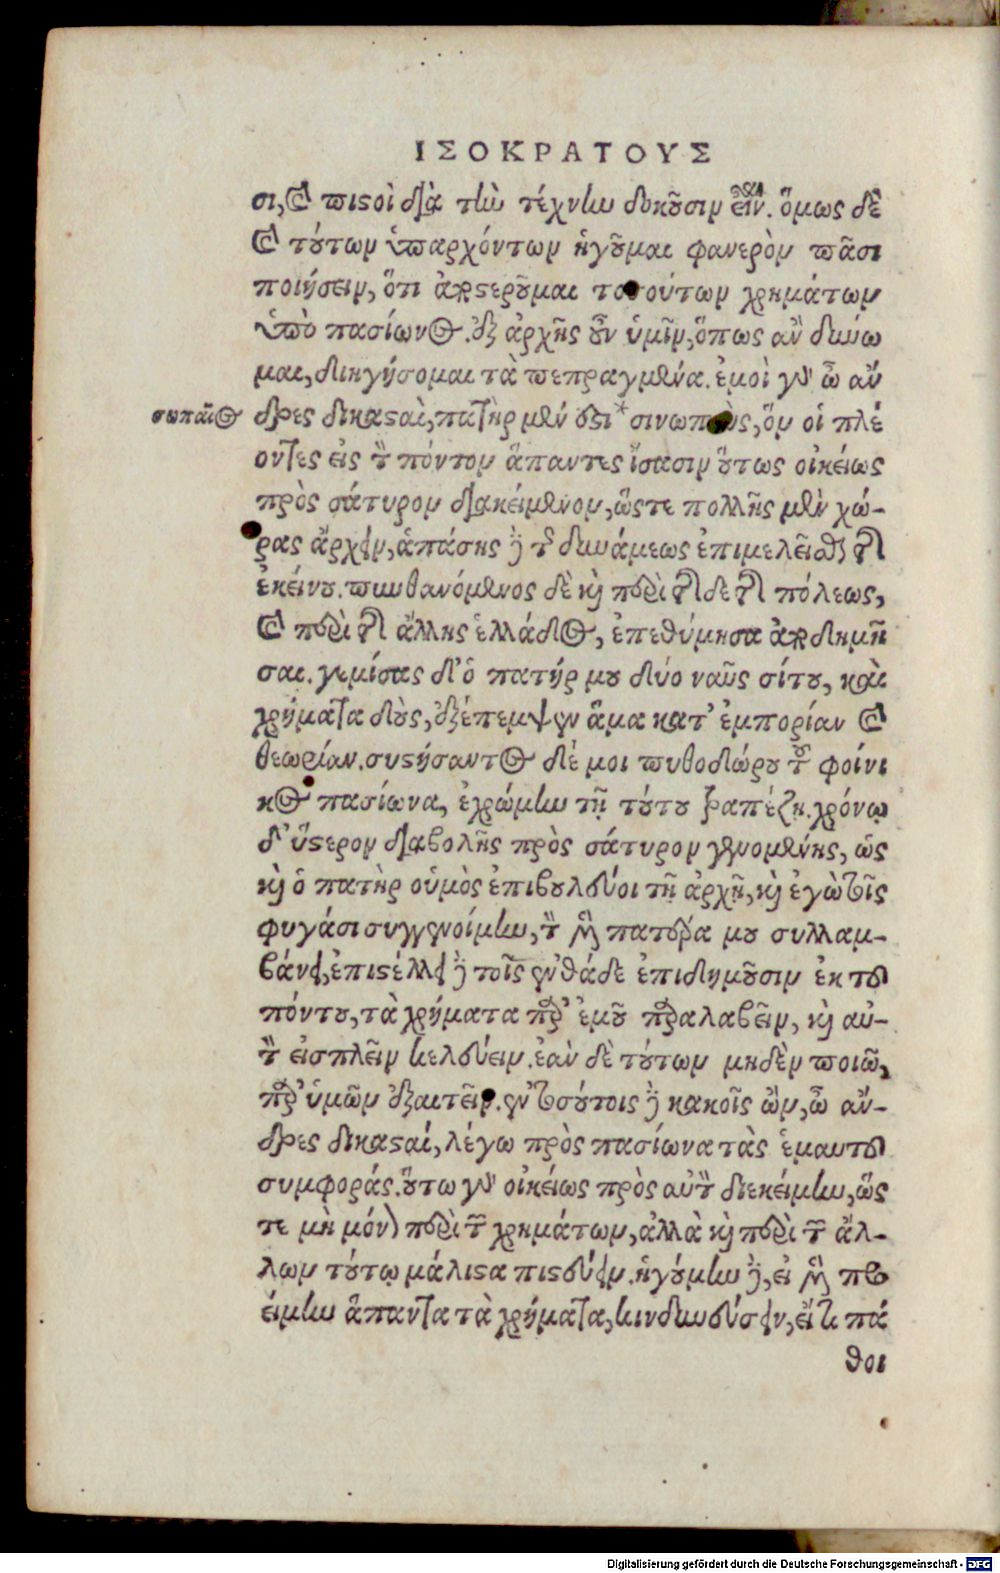 ΙΣΟΚΡΑΤΟΥΣ
σι, καὶ πιστοὶ διὰ τὴν τέχνην δοκοῦσιν εἶναι. ὅμως δὲ
καὶ τούτων ὑπαρχόντων ἡγοῦμαι φανερὸν πᾶσι
ποιήσειν, ὅτι ἀποστεροῦμαι τοσούτων χρημάτων
ὑπὸ πασίωνος. ἐξ ἀρχῆς οὖν ὑμῖν, ὅπως ἂν δύνω
μαι, διηγήσομαι τὰ πεπραγμένα. ἐμοὶ γὰρ ὦ ἄν
σωπαῖος
δρες δικασταὶ, πατὴρ μέν ἐστι* σινωπεὺς, ὃν οἱ πλέ
οντες εἰς τὸν πόντον ἅπαντες ἴσασιν οὕτως οἰκείως
πρὸς σάτυρον διακείμενον, ὥστε πολλῆς μὲν χώ-
ρας ἄρχειν, ἁπάσης δὲ τῆς δυνάμεως ἐπιμελεῖσθαι τῆς
ἐκείνου. πυνθανόμενος δὲ καὶ περὶ τῆσδε τῆς πόλεως,
καὶ περὶ τῆς ἄλλης ἑλλάδος, ἐπεθύμησα ἀποδημῆ
σαι. γεμίσας δ' ὁ πατήρ μου δύο ναῦς σίτου, καὶ
χρήματα δοὺς, ἐξέπεμψεν ἅμα κατ' ἐμπορίαν καὶ
θεωρίαν. συστήσαντος δέ μοι πυθοδώρου τοῦ φοίνι
κος πασίωνα, ἐχρώμην τῇ τούτου τραπέζῃ. χρόνῳ
δ' ὕστερον διαβολῆς πρὸς σάτυρον γενομένης, ὡς
καὶ ὁ πατὴρ οὑμὸς ἐπιβουλεύοι τῇ ἀρχῇ, καὶ ἐγὼ τοῖς
φυγάσι συγγενοίμην, τὸν μὲν πατέρα μου συλλαμ-
βάνει, ἐπιστέλλει δὲ τοῖς ἐνθάδε ἐπιδημοῦσιν ἐκ τοῦ
πόντου, τὰ χρήματα παρ' ἐμοῦ παραλαβεῖν, καὶ αὐ-
τὸν εἰσπλεῖν κελεύειν. ἐὰν δὲ τούτων μηδὲν ποιῶ,
παρ' ὑμῶν ἐξαιτεῖν. ἐν τοσούτοις δὲ κακοῖς ὢν, ὦ ἄν-
δρες δικασταί, λέγω πρὸς πασίωνα τὰς ἐμαυτοῦ
συμφοράς. οὕτω γὰρ οἰκείως πρὸς αὐτὸν διεκείμην, ὥς
τε μὴ μόνον περὶ τῶν χρημάτων, ἀλλὰ καὶ περὶ τῶν ἄλ-
λων τούτῳ μάλιστα πιστεύειν. ἡγούμην δὲ, εἰ μὲν προ
είμην ἅπαντα τὰ χρήματα, κινδυνεύσειν, εἴ τι πά
θοι
Digitalisierung gefördert durch die Deutsche Forschungsgemeinschaft - DFG